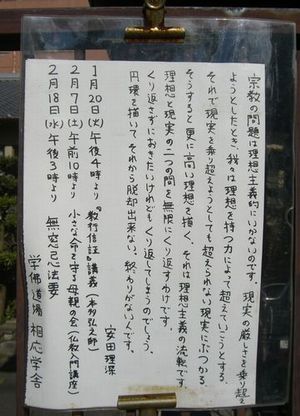 宗教の問題は理想主義的にいかないのです。現実の厳しさを乗り超え
ようとしたとき、我々は理想を持つ力によって超えていこうとする。
それで現実を乗り超えようとしても超えられない現実にぶつかる。
そうすると更に高い理想を描く。それは理想主義の流転です。
理想と現実の二つの間を無限にくり返すわけです。
くり返さずにおきたいけれどもくり返してしまうのでしょう。
円環を描いてそれから脱却出来ない。終わりがないんです。
安田理深
1月20日(火)午後4時より『教行信証』講義(本多弘之師)
2月7日(土)午前10時より 小さな命を守る母親の会(仏教入門講座)
2月18日(水)午後3時より 無窓忌法要
学佛道場 相応学舎